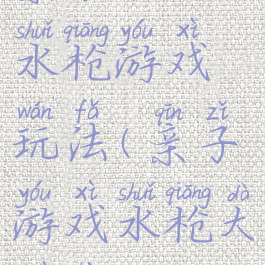 shuǐ qiāng yóu xì
水枪游戏
wán fǎ qīn zǐ
玩法(亲子
yóu xì shuǐ qiāng dà
游戏水枪大